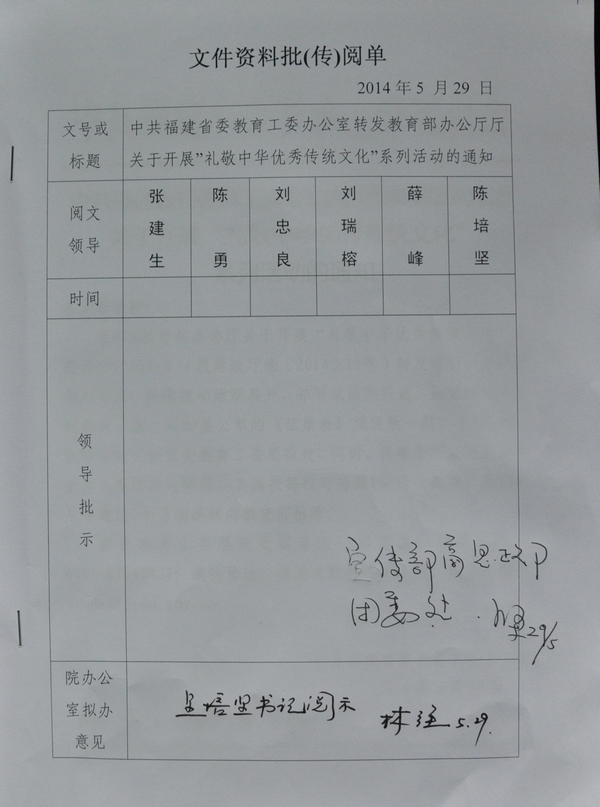 文件资料批(传)阅单
2014年5月29日
文号或
标题
中共福建省委教育工委办公室转发教育部办公厅厅
关于开展"礼敬中华优秀传统文化"系列活动的通知
阅文
领导
张建生
陈勇
刘忠良
刘瑞榕
薛峰
陈培坚
时间
领导批示
宣传部商思政
团委处. 29/5
院办公
室拟办
意见
呈培坚书记阅示
林 5.29.